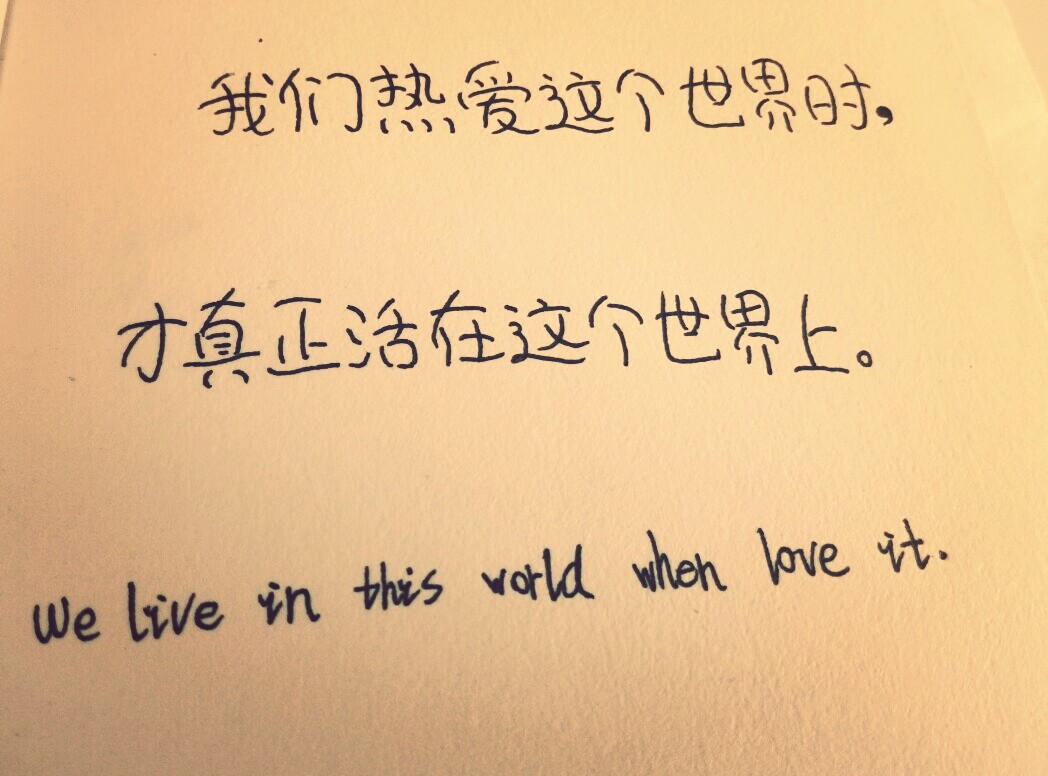 我们热爱这个世界时，
才真正活在这个世界上。
We live in this world when love it.